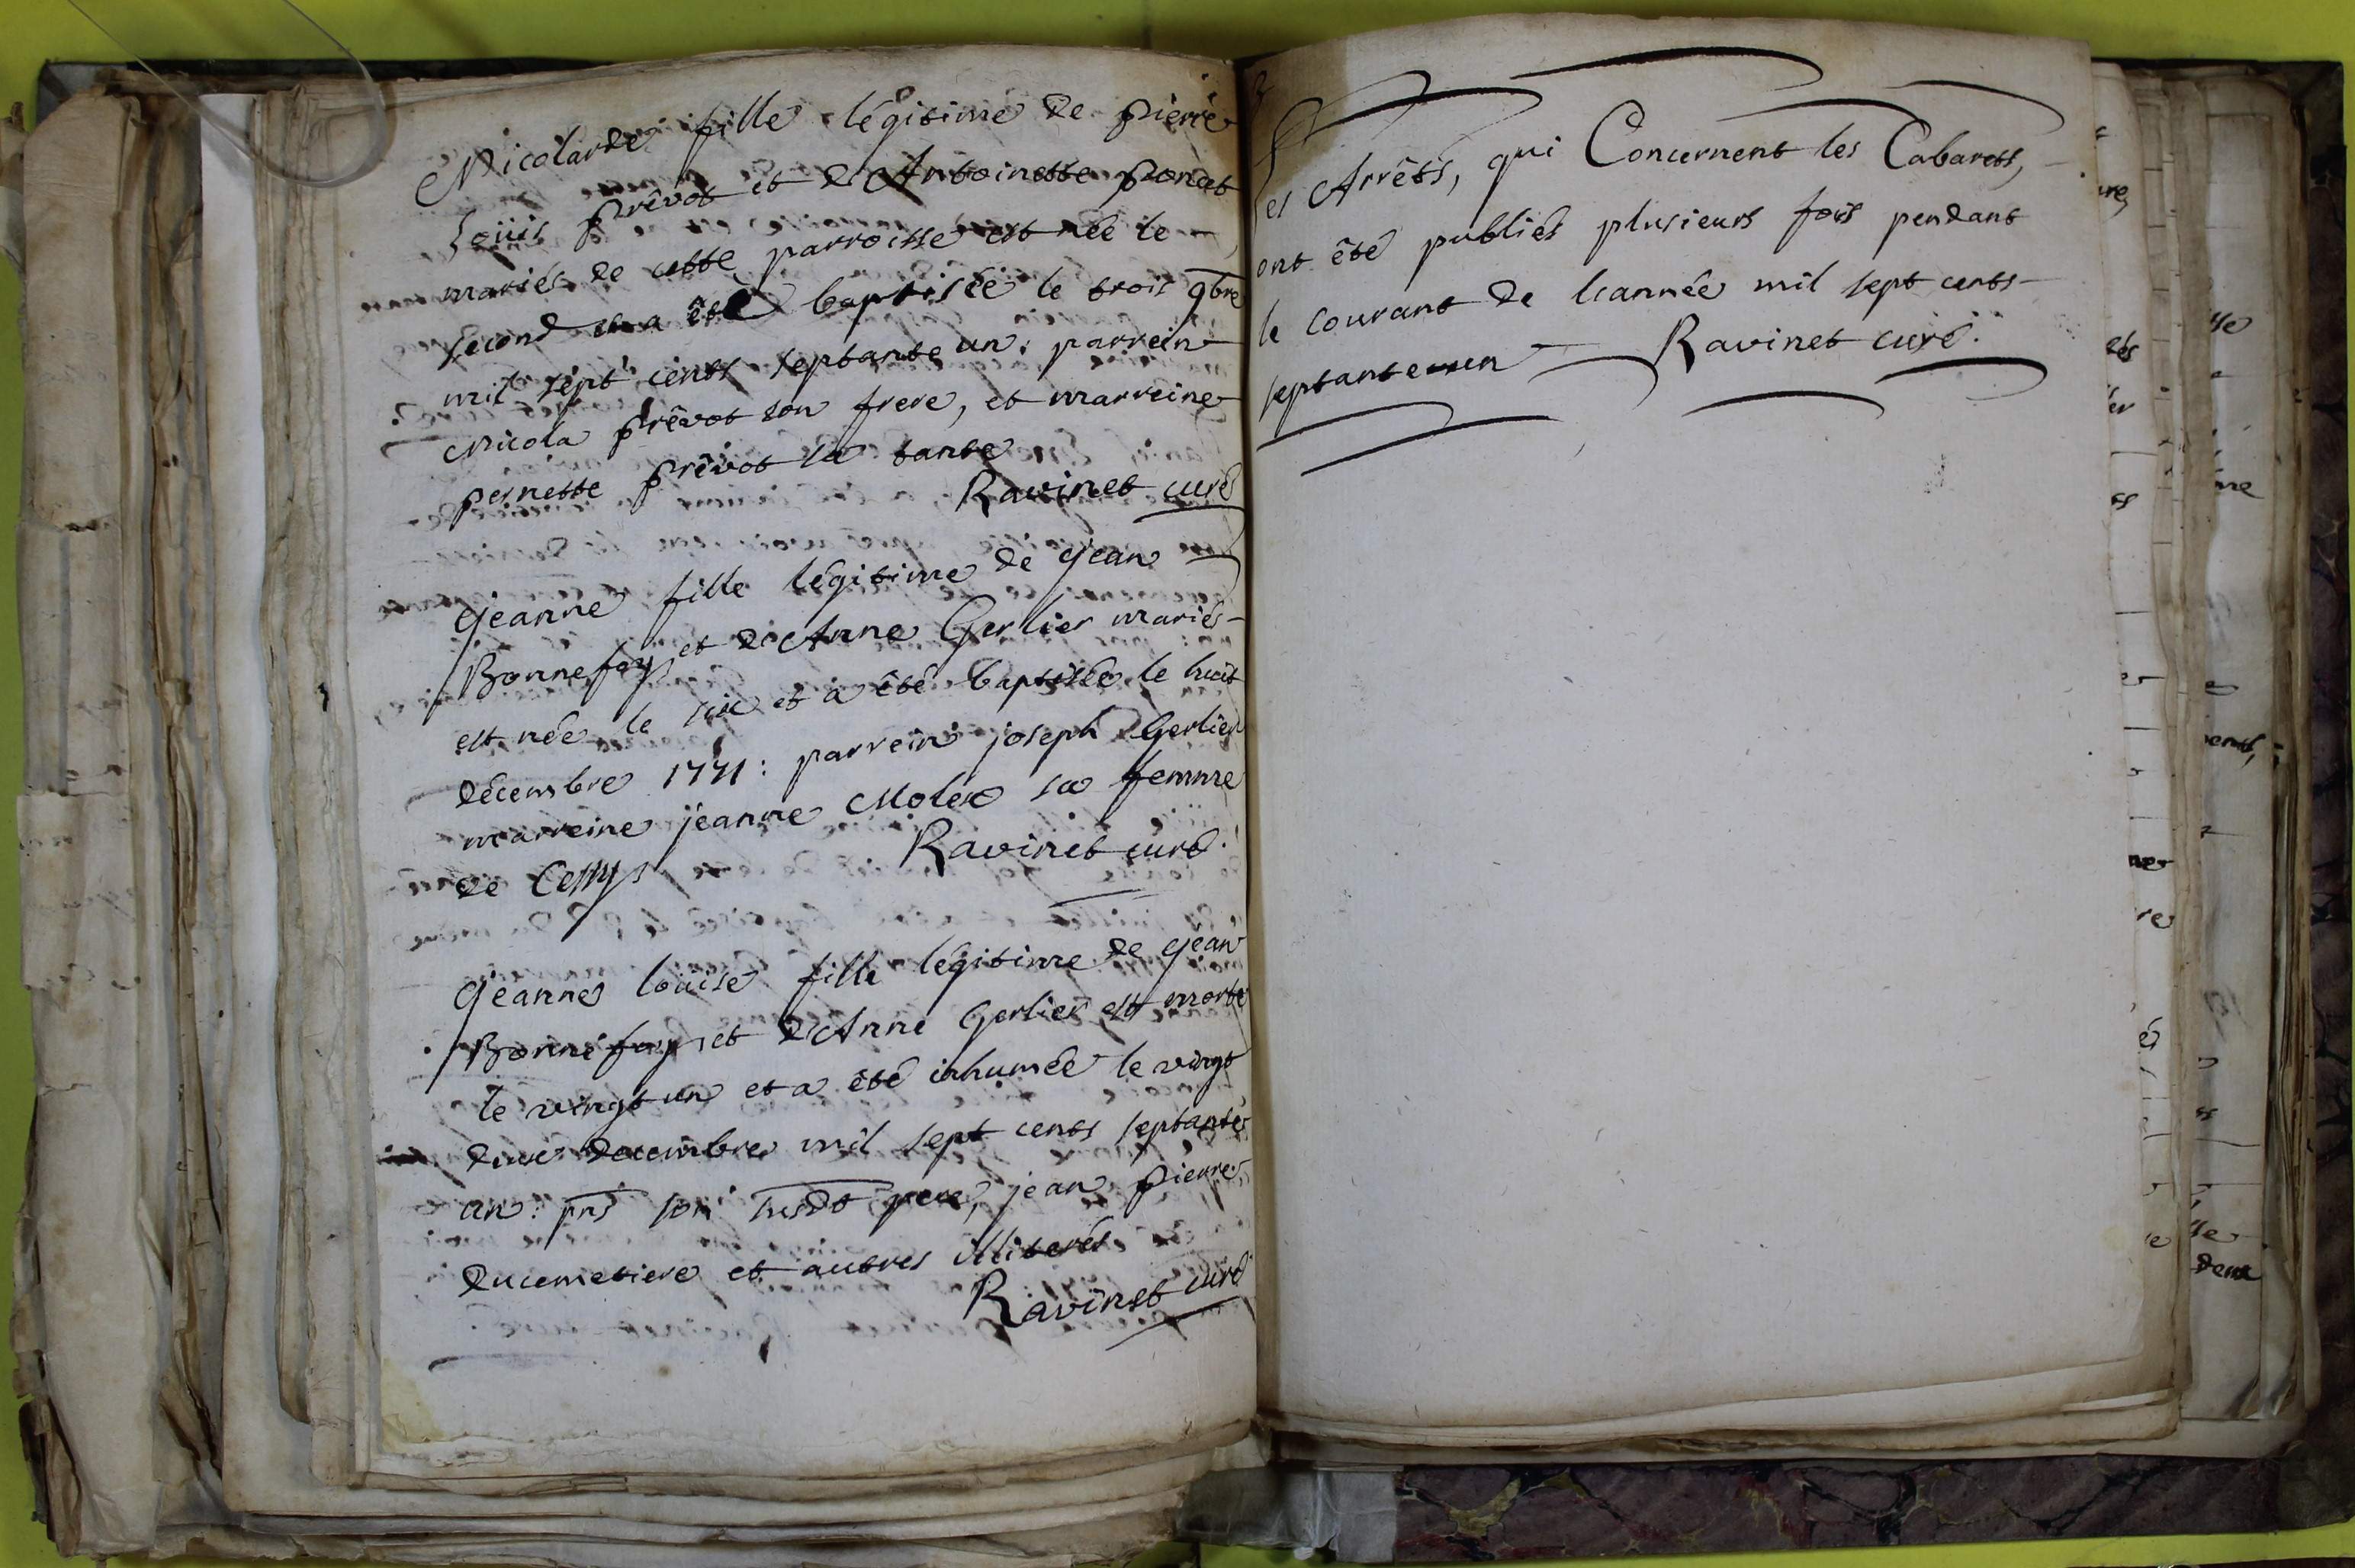 Nicolarde fille légitime de pierre
Loüis prêvot et d'Antoinette ponat
mariés de cette parroisse est née le
second et a êté baptisée le trois 9bre
mil sept cents septante un: parrein
Nicola prêvot son frere, et marreine
pernette prêvot sa tante
Ravinet curé
Jeanne fille légitime de Jean
Bonnefoy, et d'Anne Gerlier mariés
est née le six et a êté baptisée le huit
décembre 1771: parrein joseph Gerlier
marreine jeanne sa femme
de Cessy
Ravinet curé.
Jeanne loüise fille légitime de Jean
Bonnefoy, et d'Anne Gerlier est morte
le vingt un et a êté inhumée le vingt
deux decembre mil sept cents septante
un: pnt son susdt pere, jean pierre
Ducimetiere et autres illiterés
Ravinet curé
Les Arrêts, qui Concernent les Cabarets,
ont êté publiés plusieurs fois pendant
le courant de l'année mil sept cents
septante un Ravinet curé.